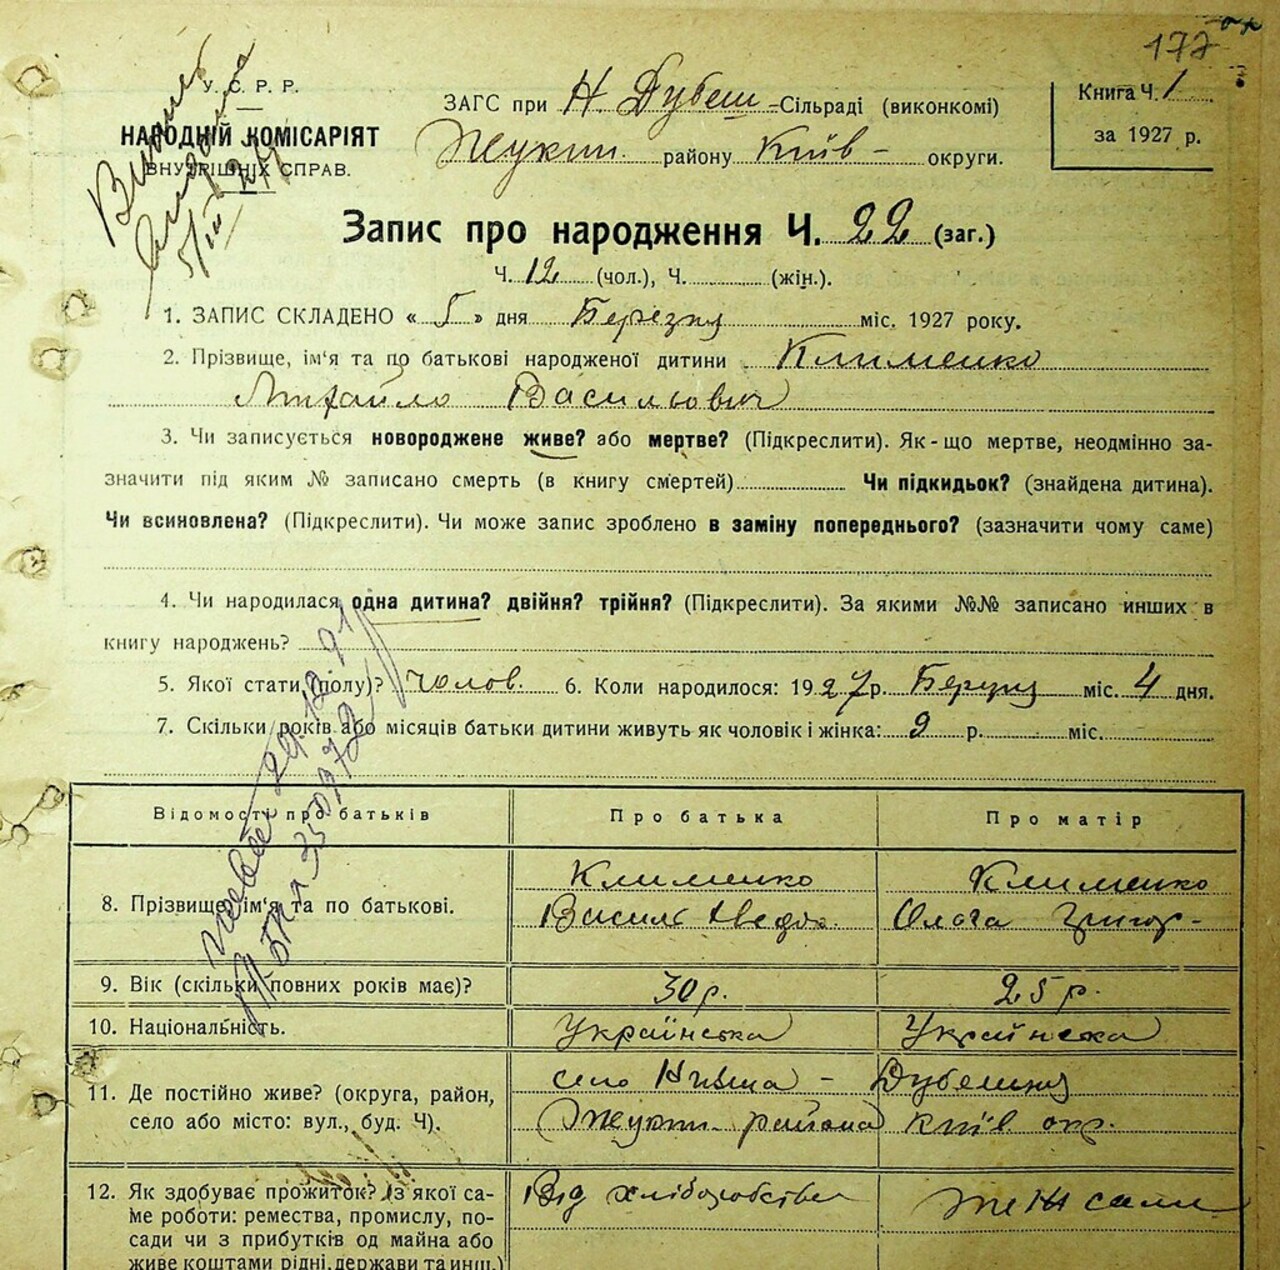 177
У.С.Р.Р.
НАРОДНІЙ КОМІСАРІЯТ
ВНУТРІШНІХ СПРАВ.
ЗАГС при Н. Дубеш - Сільраді (виконкомі)
Жукин. району Київ - округи.
Книга Ч. 1
за 1927 р.
Запис про народження Ч. 22 (заг.)
Ч. 12 (чол.), Ч. (жін.).
1. ЗАПИС СКЛАДЕНО « 5 » дня Березня міс. 1927 року.
2. Прізвище, ім'я та по батькові народженої дитини Клименко
Михайло Васильович
3. Чи записується новороджене живе? або мертве? (Підкреслити). Як-що мертве, неодмінно за-
значити під яким № записано смерть (в книгу смертей) Чи підкидьок? (знайдена дитина).
Чи всиновлена? (Підкреслити). Чи може запис зроблено в заміну попереднього? (зазначити чому саме)
4. Чи народилася одна дитина? двійня? трійня? (Підкреслити). За якими №№ записано инших в
книгу народжень?
5. Якої стати (полу)? чолов. 6. Коли народилося: 1927 р. Березня міс. 4 дня.
7. Скільки років або місяців батьки дитини живуть як чоловік і жінка: 9 р. міс.
Відомості про батьків Про батька Про матір
8. Прізвище, ім'я та по батькові. Клименко Клименко
Василь Ольга Григор-
9. Вік (скільки повних років має)? 30 р. 25 р.
10. Національність. Українська Українська
11. Де постійно живе? (округа, район, село Нивша - Дубешня
село або місто: вул., буд. Ч). Жукин. района Київ окр.
12. Як здобуває прожиток? Із якої са- Від хліборобства теж саме
ме роботи: ремества, промислу, по-
сади чи з прибутків од майна або
живе коштами рідні, держави та инш.)